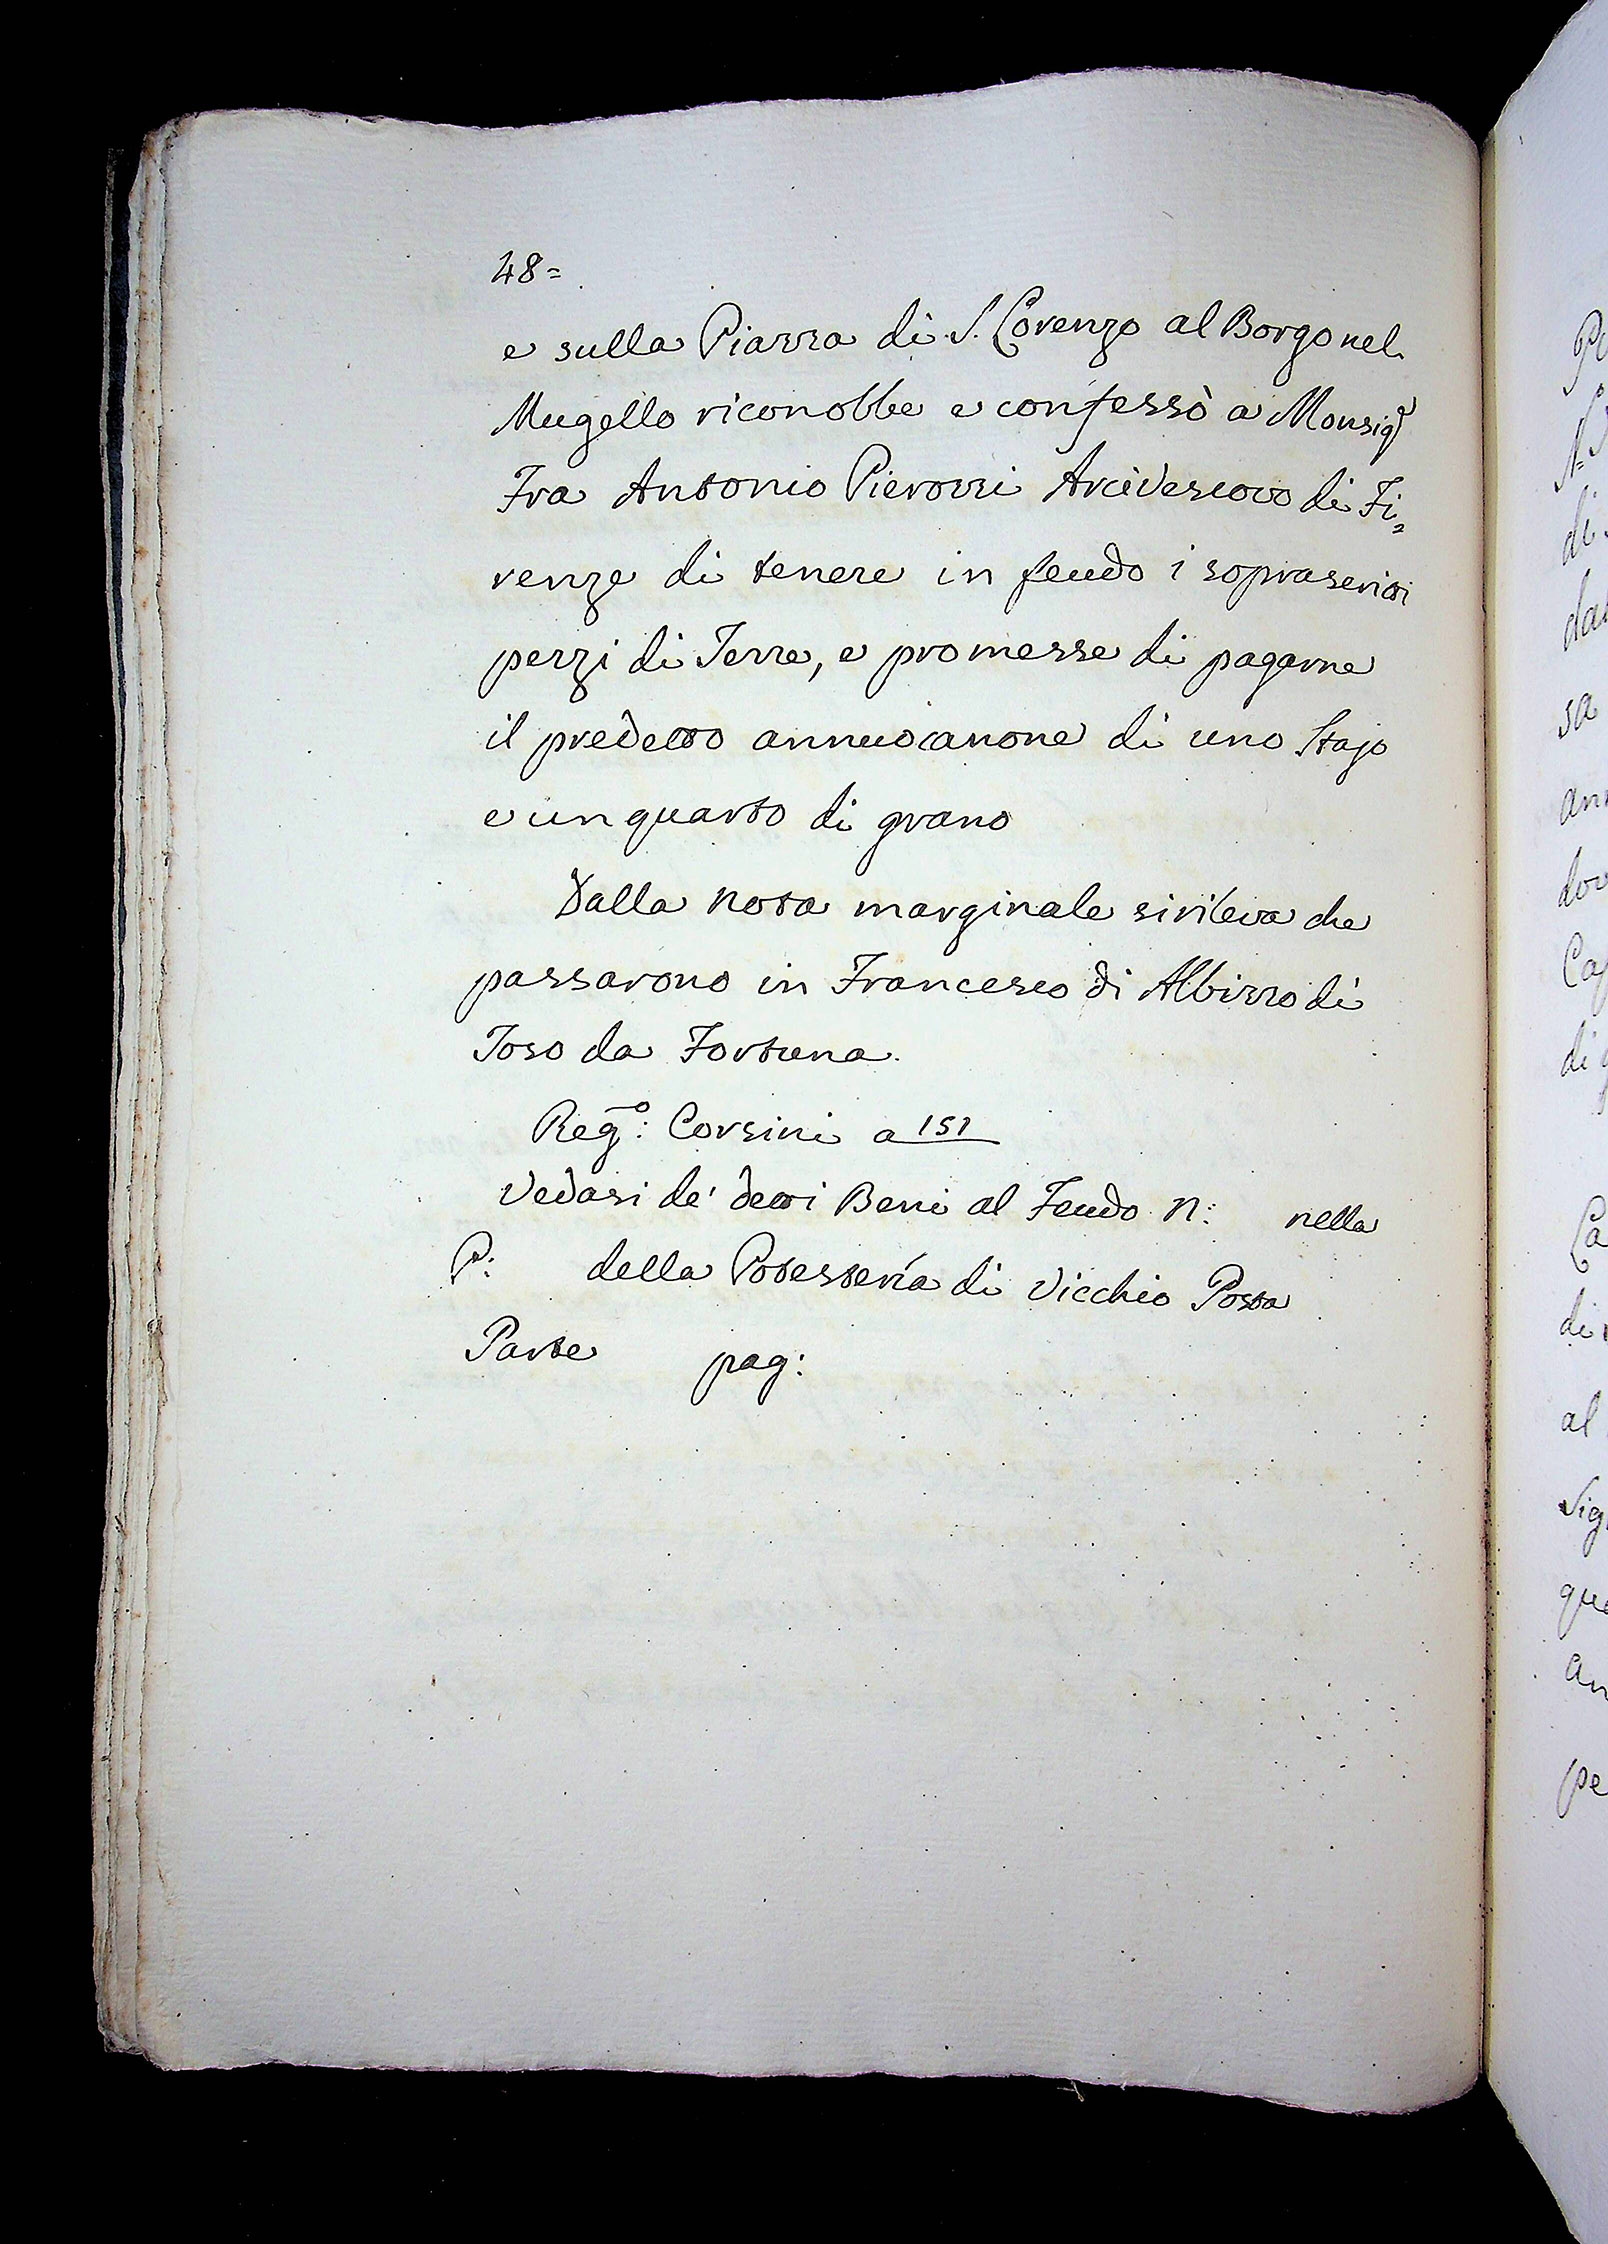 48=
e sulla Piazza di S. Lorenzo al Borgo nel
Mugello riconobbe e confessò a Monsigr
Fra Antonio Pierozzi Arcivescovo di Fi=
renze di tenere in feudo i soprascritti
pezzi di Terre, e promesse di pagarne
il predetto annuo canone di uno Stajo
e un quarto di grano
Dalla nota marginale si rileva che
passarono in Francesco di Albizzo di
Toso da Fortuna.
Rego: Corsini a 151
Vedasi de' detti Beni al Feudo N: nella
P: della Potesteria di Vicchio Posta
Parte pag: